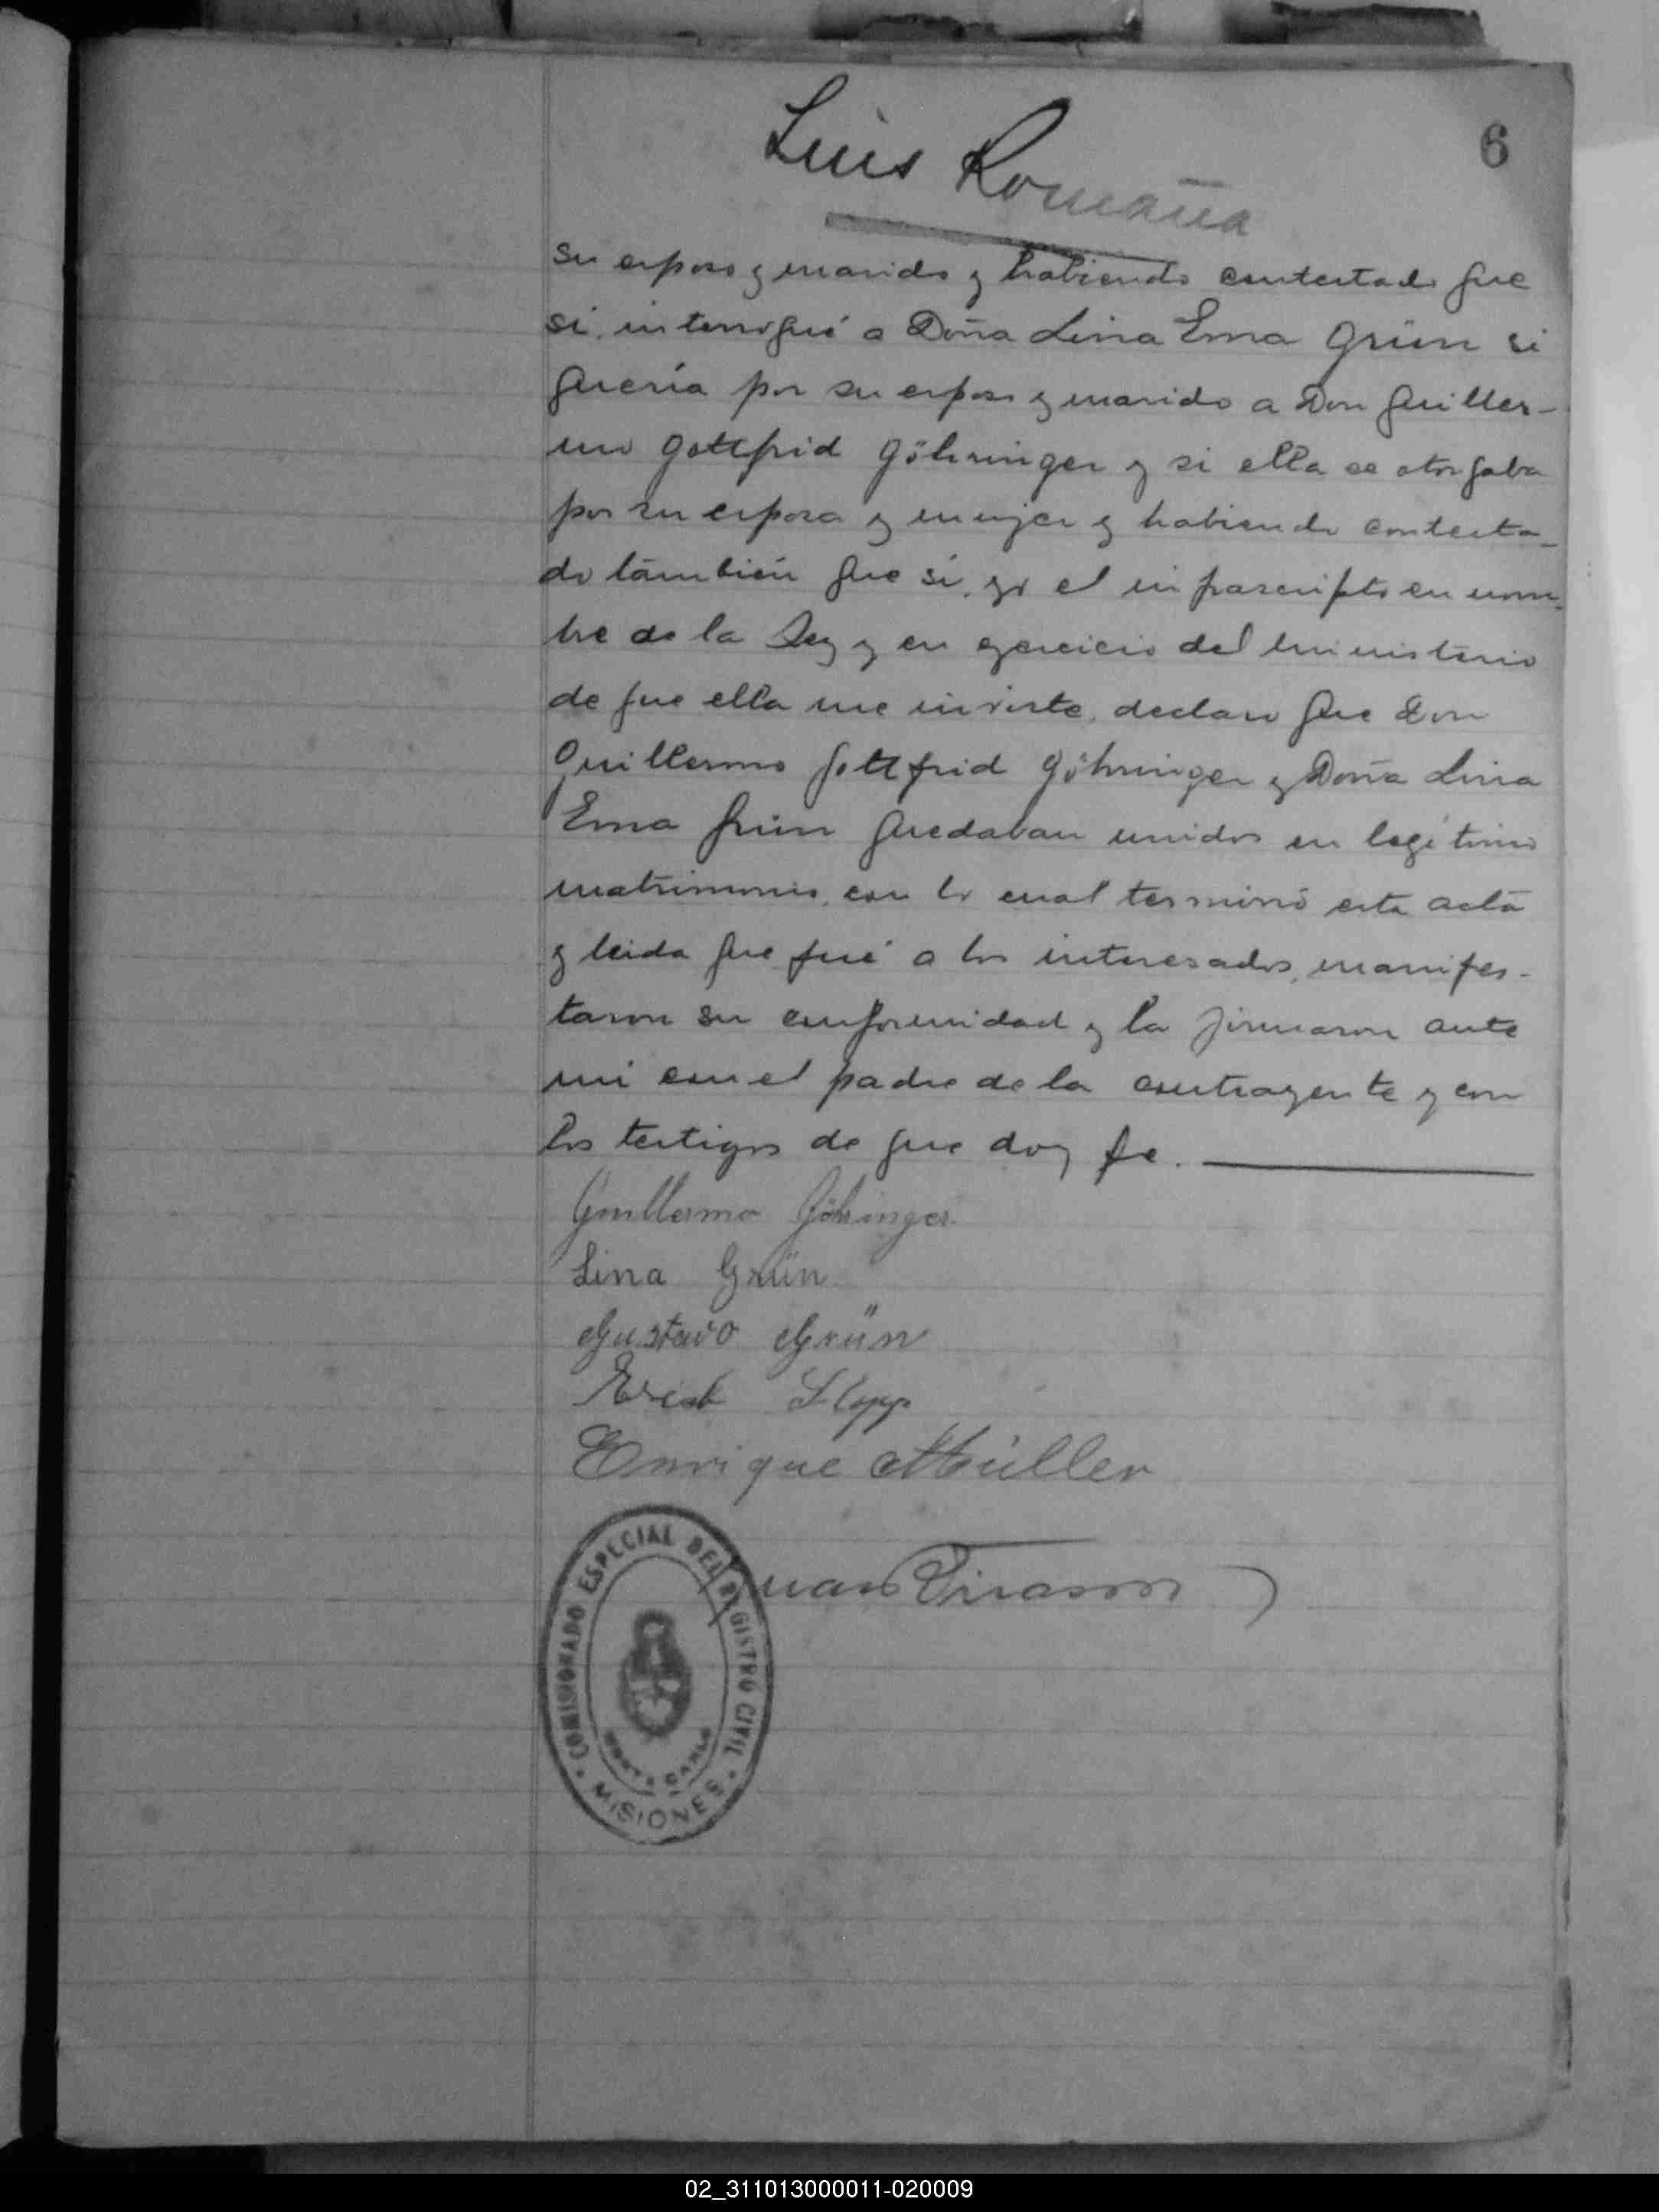 6
Luis Romaña
su esposo y marido y habiendo contestado que
si, interrogué a Doña Lina Ema Grün si
quería por su esposo y marido a Don Guiller-
mo Gottfrid Göhringer y si ella se otorgaba
por su esposa y mujer y habiendo contesta-
do también que si, yo el infrascripto en nom-
bre de la Ley y en ejercicio del ministerio
de que ella me inviste, declaro que Don
Guillermo Gottfrid Göhringer y Doña Lina
Ema Grün quedaban unidos en legítimo
matrimonio, con lo cual terminó esta acta
y leida que fué a los interesados, manifes-
taron su conformidad y la firmaron ante
mi con el padre de la contrayente y con
los testigos de que doy fe.
Guillermo Göhringer
Lina Grün
Gustavo Grün
Erich
Enrique Müller
Juan
COMISIONADO ESPECIAL DEL REGISTRO CIVIL
MONTE CARLO
MISIONES
02_311013000011-020009